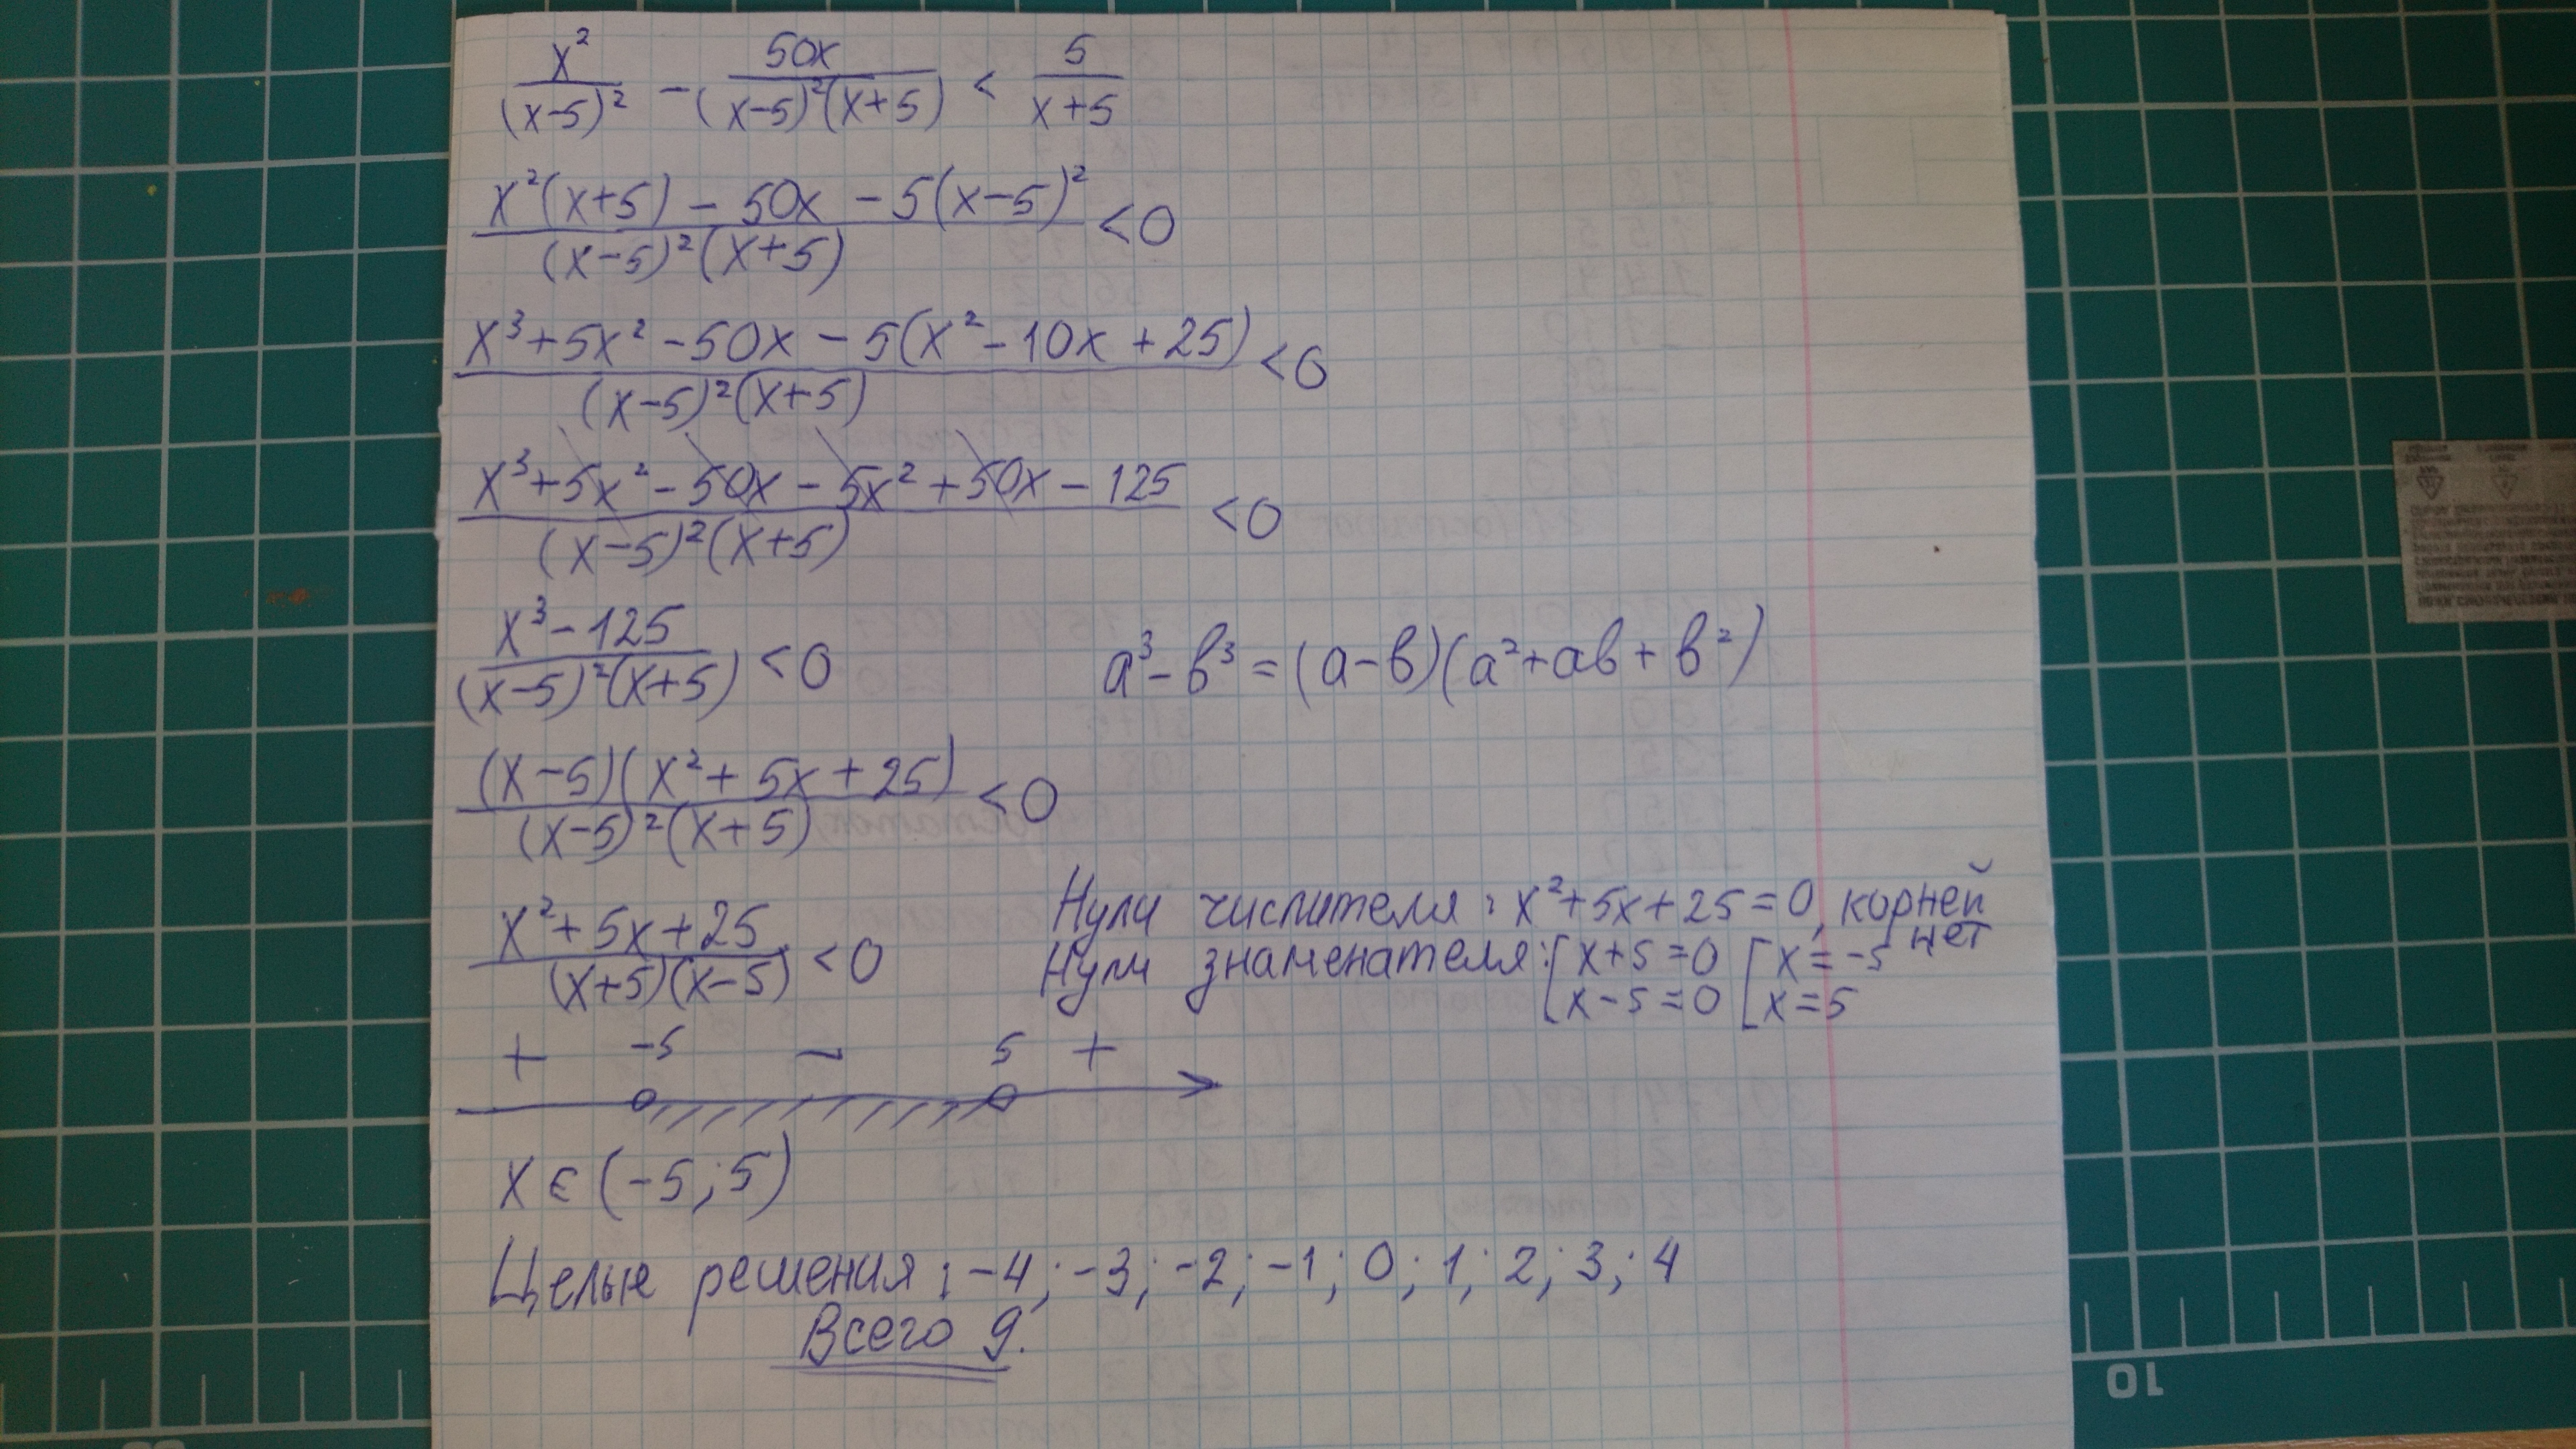 x²/(x-5)² - 50x/((x-5)²(x+5)) < 5/(x+5)
(x²(x+5) - 50x - 5(x-5)²)/((x-5)²(x+5)) < 0
(x³+5x²-50x-5(x²-10x+25))/((x-5)²(x+5)) < 0
(x³+5x²-50x-5x²+50x-125)/((x-5)²(x+5)) < 0
(x³-125)/((x-5)²(x+5)) < 0
a³-b³=(a-b)(a²+ab+b²)
((x-5)(x²+5x+25))/((x-5)²(x+5)) < 0
(x²+5x+25)/((x+5)(x-5)) < 0
Нули числителя: x²+5x+25=0, корней нет
Нули знаменателя: [x+5=0 [x=-5
[x-5=0 [x=5
+ -5 - 5 +
x∈(-5;5)
Целые решения: -4; -3; -2; -1; 0; 1; 2; 3; 4
Всего 9.
10